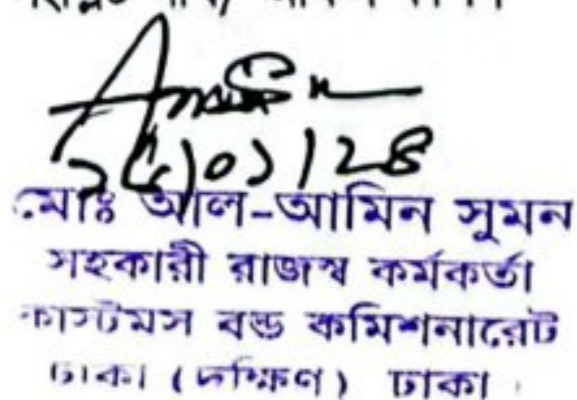 ২৫/০১/২৪
মোঃ আল-আমিন সুমন
সহকারী রাজস্ব কর্মকর্তা
কাস্টমস বন্ড কমিশনারেট
ঢাকা (দক্ষিণ) ঢাকা।